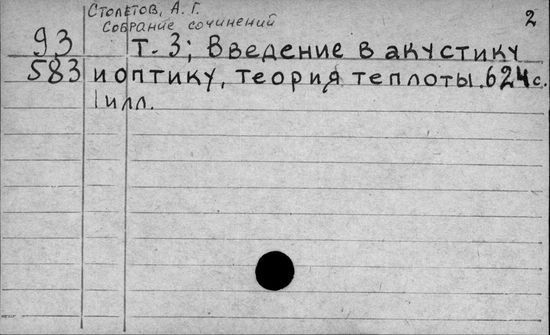 Столетов, А. Г. 2
Собрание сочинений
93 Т. 3; Введение в акустику
583 и оптику, теория теплоты. 624 с.
1 илл.